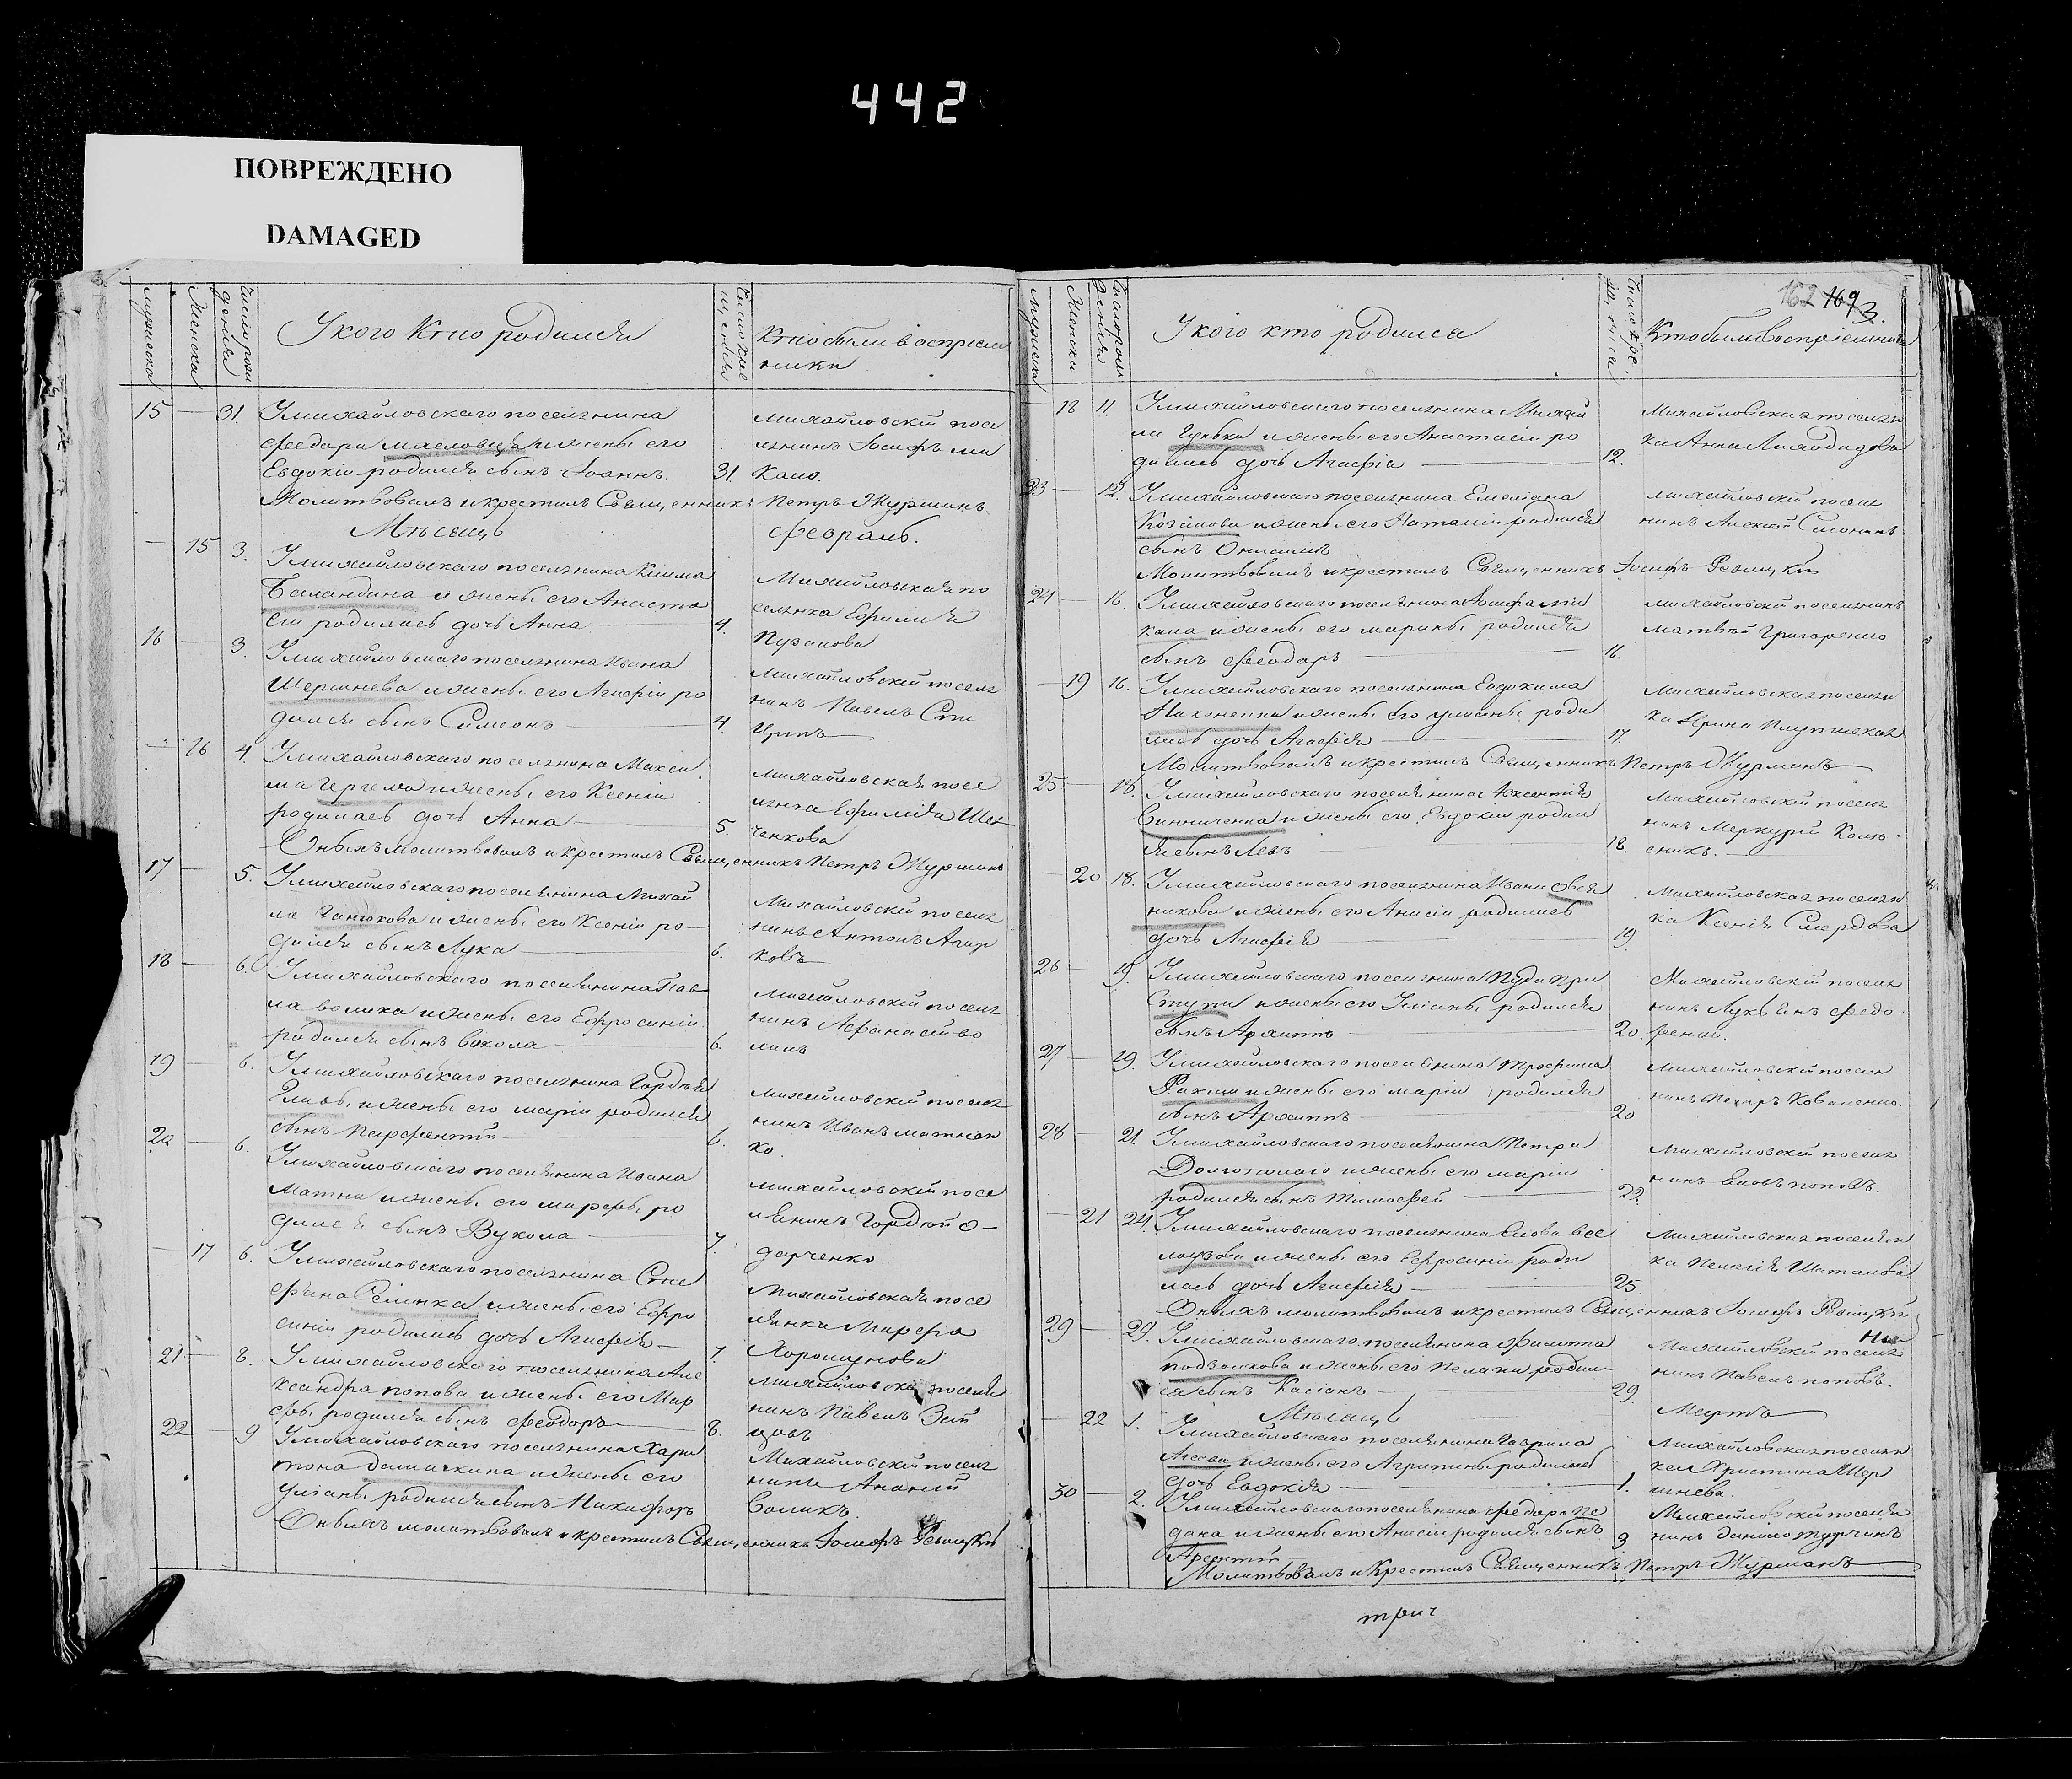 442
ПОВРЕЖДЕНО
DAMAGED
мужеска
Женска
Число рож
дения
У кого Кто родился
Число кре
щения
Кто были восприем
ники
15 — 31. У михайловскаго поселянина
Феодора масловца и жены его
Евдокіи родился сынъ Іоаннъ 31.
михайловскій посе
лянинъ Іосифъ ми
кало.
Молитвовалъ и крестилъ Священникъ Петръ Журманъ
Мѣсяцъ Февраль.
— 15 3. У михайловскаго поселянина Клима
Баландина и жены его Анаста
сіи родилась дочь Анна — 4.
Михайловская по
селянка Ефимія
Пузанова
16 — 3. У михайловскаго поселянина Ивана
Шершнева и жены его Агафіи ро
дился сынъ Симеонъ — 4.
михайловскій поселя
нинъ Павелъ
— 16 4. У михайловскаго поселянина Макси
ма и жены его Ксеніи
родилась дочь Анна — 5.
михайловская посе
лянка Ефимія Шев
ченкова
Оныхъ молитвовалъ и крестилъ Священникъ Петръ Журманъ
17 — 5. У михайловскаго поселянина Михай
ла Ганюкова и жены его Ксеніи ро
дился сынъ Лука — 6.
Михайловскій поселя
нинъ Антонъ Агар
ковъ
18 — 6. У михайловскаго поселянина Пав
ла волика и жены его Ефросиніи
родился сынъ вукола — 6.
михайловскій поселя
нинъ Афанасій во
ликъ
19 — 6. У михайловскаго поселянина Гордѣя
и жены его маріи родился
сынъ Парфентій — 6.
михайловскій поселя
нинъ Иванъ
ко.
20 — 6. У михайловскаго поселянина Ивана
Матни и жены его марфы ро
дился сынъ Вукола — 7.
михайловскій посе
лянинъ Гордѣй О-
дарченко
— 17 6. У михайловскаго поселянина Сте
фана Селинка и жены его Ефро
синіи родилась дочь Агафія — 7.
михайловская посе
лянка Марфа
Хорошунова
21 — 8. У михайловскаго поселянина Але
ксандра попова и жены его Мар
фы родился сынъ Феодоръ — 8.
михайловскій поселя
нинъ Павелъ Зай
цовъ
22 — 9. У михайловскаго поселянина Хари
тона и жены его
уліаны родился сынъ Никифоръ
Михайловскій поселя
нинъ Ананій
Воликъ.
Оныхъ молитвовалъ и крестилъ Священникъ Іосифъ Рѣвицкій
162 169
3.
Мужеска
Женска
Число рож
денія
У кого кто родился
Число кре
щенія
Кто были воспріемники
18 11. У михайловскаго поселянина Михай
ла и жены его Анастасіи ро
дилась дочь Агафія — 12.
Михайловская поселян
ка Анна
23 — 12. У михайловскаго поселянина Емеліана
Козлова и жены его Наталіи родился
сынъ Онисимъ
михайловскій поселя
нинъ Алексѣй
Молитвовалъ и крестилъ Священникъ Іосифъ Рѣвицкій
24 — 16. У михайловскаго поселянина Іосифа ми
кала и жены его марины родился
сынъ Феодоръ — 16.
михайловскій поселянинъ
матвѣй Григоренко
— 19 16. У михайловскаго поселянина Евдокима
и жены его уліаны роди
лась дочь Агафія — 17.
михайловская поселян
ка Ирина
Молитвовалъ и крестилъ Священникъ Петръ Журманъ
25 — 18. У михайловскаго поселянина Авксентія
Винниченка и жены его Евдокіи родил
ся сынъ Левъ — 18.
михайловскій поселя
нинъ Меркурій Колѣ
сникъ.
— 20 18. У михайловскаго поселянина Ивана овся
никова и жены его Анисіи родилась
дочь Агафія — 19.
михайловская поселян
ка Ксенія Смердова
26 — 19. У михайловскаго поселянина Пуда при
ступи и жены его Уліаны родился
сынъ Архипъ — 20.
Михайловскій поселя
нинъ Лукьянъ Федо
ренко.
27 — 19. У михайловскаго поселянина Трофима
и жены его маріи родился
сынъ Архиппъ — 20
михайловскій поселя
нинъ Петръ Коваленко.
28 — 21 У михайловскаго поселянина Петра
Долгополаго и жены его маріи
родился сынъ Тимофей — 22.
михайловскій поселя
нинъ попова.
— 21 24. У михайловскаго поселянина бес
и жены его Ефросиніи роди
лась дочь Агафія — 25.
Михайловская поселян
ка Пелагія Шаталова
Оныхъ молитвовалъ и крестилъ Священникъ Іосифъ Рѣвицкій
29 — 29. У михайловскаго поселянина Филиппа
подволкова и жены его Пелагіи родил
ся сынъ Касіанъ — 29.
Михайловскій поселя
нинъ Павелъ поповъ.
Мѣсяцъ Мартъ
— 22 1. У михайловскаго поселянина Гаврила
Агеева и жены его Агрипины родилась
дочь Евдокія — 1.
михайловская поселян
ка Христина Шер
шнева.
30 — 2. У михайловскаго поселянина Феодора Пе
дана и жены его Анисіи родился сынъ
Арсентій 3
Михайловскій поселя
нинъ Данило турчинъ
Молитвовалъ и Крестилъ Священникъ Петръ Журманъ